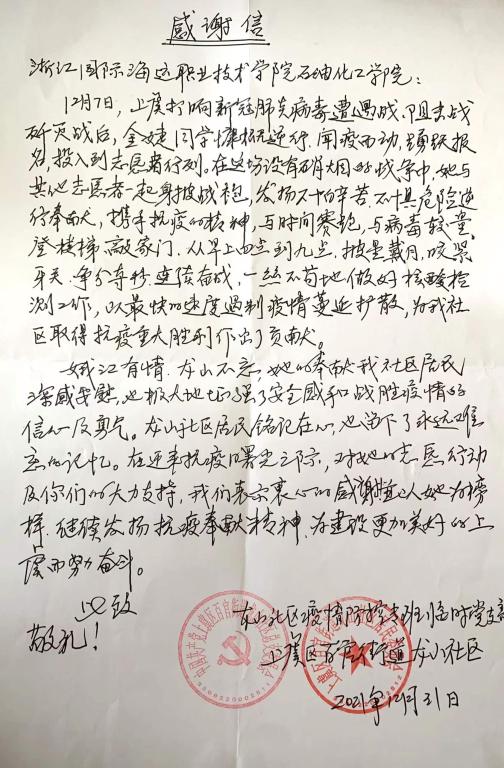 感谢信
浙江国际海运职业技术学院石油化工学院：
12月7日，上虞打响新冠肺炎病毒遭遇战、阻击战
歼灭战后，金婕同学慷慨逆行，闻疫而动，踊跃报
名，投入到志愿者行列。在这场没有硝烟的战争中，她与
其他志愿者一起身披战袍，发扬不怕辛苦、不惧危险逆
行奉献，携手抗疫的精神，与时间赛跑，与病毒较量，
登楼梯敲家门，从早上四点到九点，披星戴月，咬紧
牙关，争分夺秒，连续奋战，一丝不苟地做好核酸检
测工作，以最快的速度遏制疫情蔓延扩散，为我社
区取得抗疫重大胜利作出了贡献。
娥江有情，龙山不忘，她的奉献我社区居民
深感安慰，也极大地增强了安全感和战胜疫情的
信心及勇气。龙山社区居民铭记在心，也留下了永远难
忘的记忆。在迎来抗疫曙光之际，对她的志愿行动
及你们的大力支持，我们表示衷心的感谢，她为榜
样，继续发扬抗疫奉献精神，为建设更加美好的上
虞而努力奋斗。
此致
敬礼！
龙山社区疫情防控专班临时党支部
上虞区百官街道龙山社区
2021年12月31日